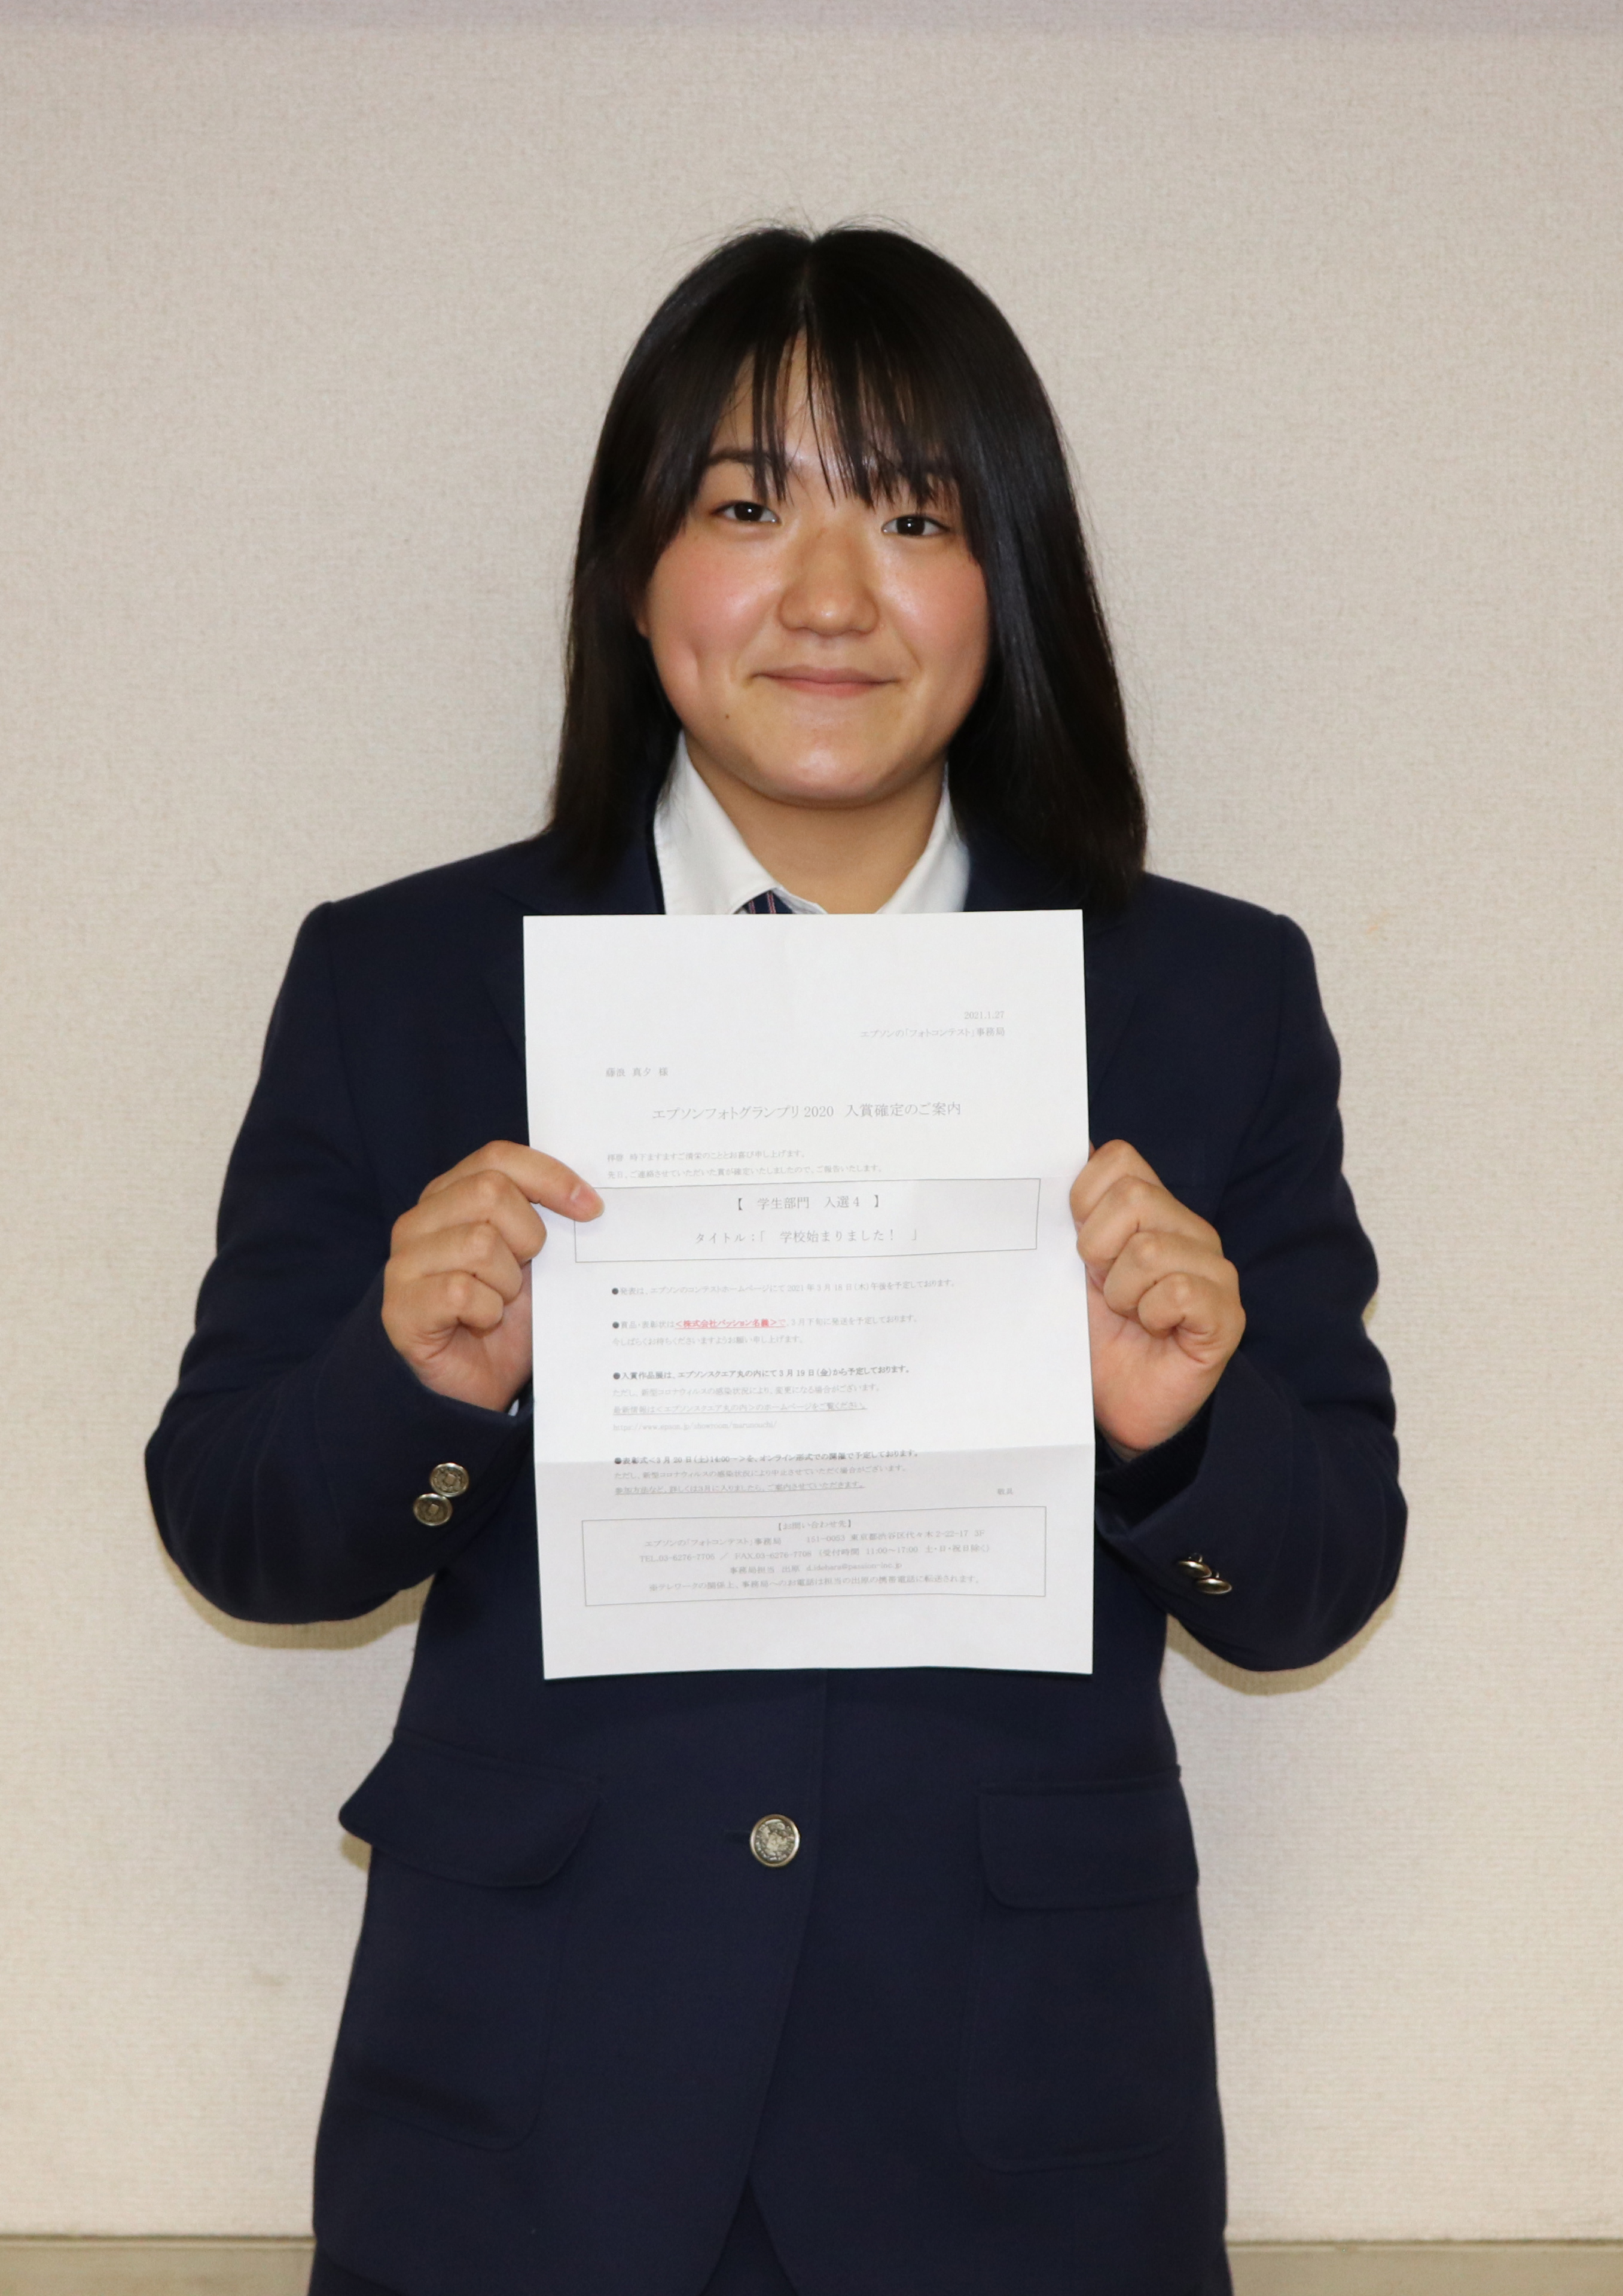 2021.1.27
エプソンの「フォトコンテスト」事務局
藤浪 真夕 様
エプソンフォトグランプリ2020 入賞確定のご案内
拝啓 時下ますますご清栄のこととお喜び申し上げます。
先日、ご連絡させていただいた賞が確定いたしましたので、ご報告いたします。
【 学生部門 入選4 】
タイトル：「 学校始まりました！ 」
●発表は、エプソンのコンテストホームページにて2021年3月18日（木）午後を予定しております。
●賞品・表彰状は＜株式会社パッション名義＞で、3月下旬に発送を予定しております。
今しばらくお待ちくださいますようお願い申し上げます。
●入賞作品展は、エプソンスクエア丸の内にて3月19日（金）から予定しております。
ただし、新型コロナウィルスの感染状況により、変更になる場合がございます。
最新情報は＜エプソンスクエア丸の内＞のホームページをご覧ください。
https://www.epson.jp/showroom/marunouchi/
●表彰式＜3月20日（土）14:00～＞を、オンライン形式での開催で予定しております。
ただし、新型コロナウィルスの感染状況により中止させていただく場合がございます。
参加方法など、詳しくは3月に入りましたら、ご案内させていただきます。
敬具
【お問い合わせ先】
エプソンの「フォトコンテスト」事務局 151-0053 東京都渋谷区代々木2-22-17 2F
TEL.03-6276-7706 ／ FAX.03-6276-7708 （受付時間 11:00～17:00 土・日・祝日除く）
事務局担当 出原
※テレワークの関係上、事務局へのお電話は担当の出原の携帯電話に転送されます。